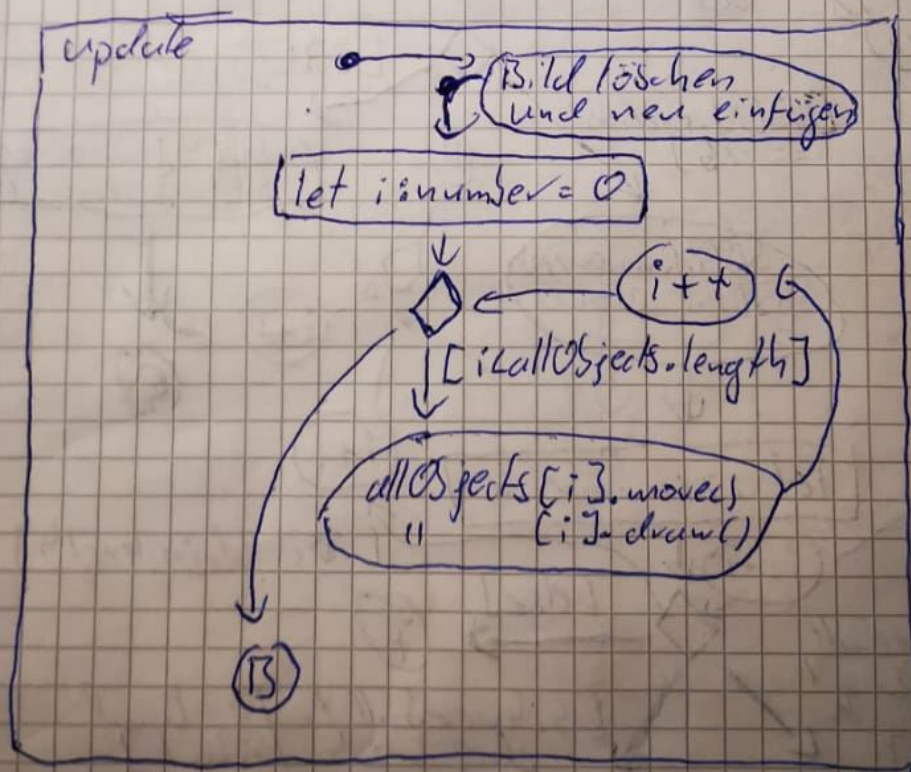 update
Bild löschen
und neu einfügen
let i:number = 0
i++
[i<allObjects.length]
allObjects[i].move()
" [i].draw()
B